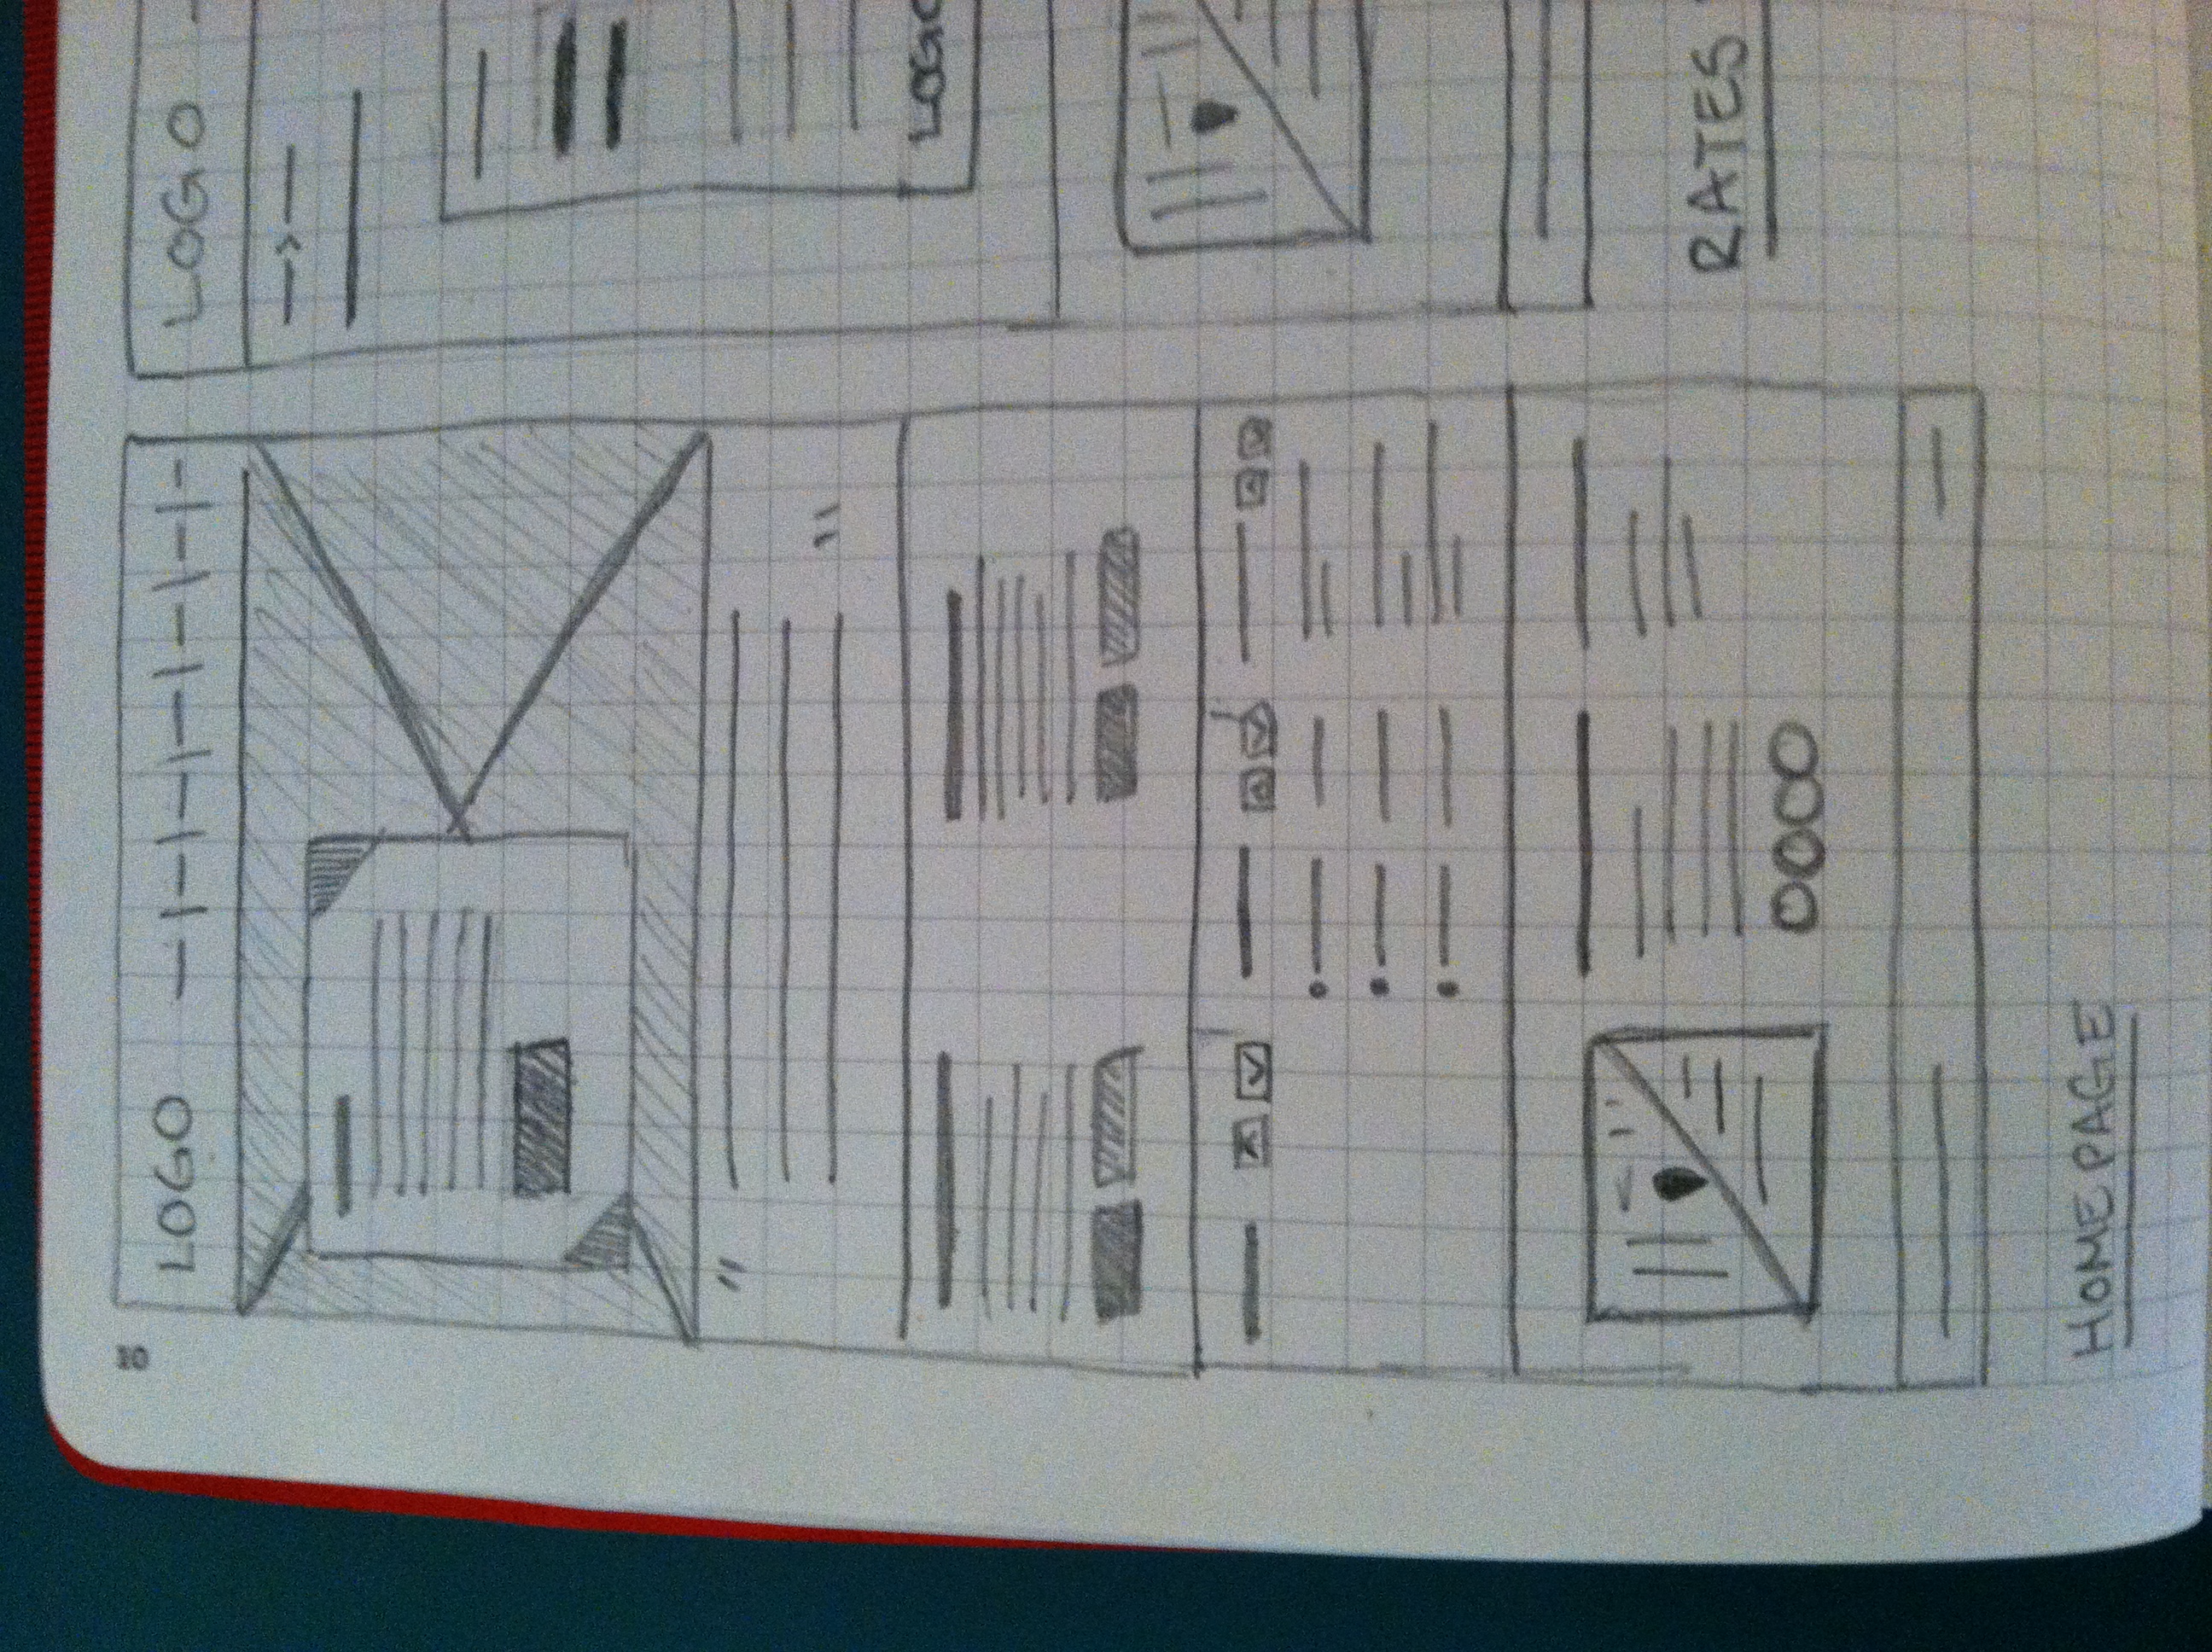 LOGO
HOMEPAGE
LOGO
LOGO
RATES